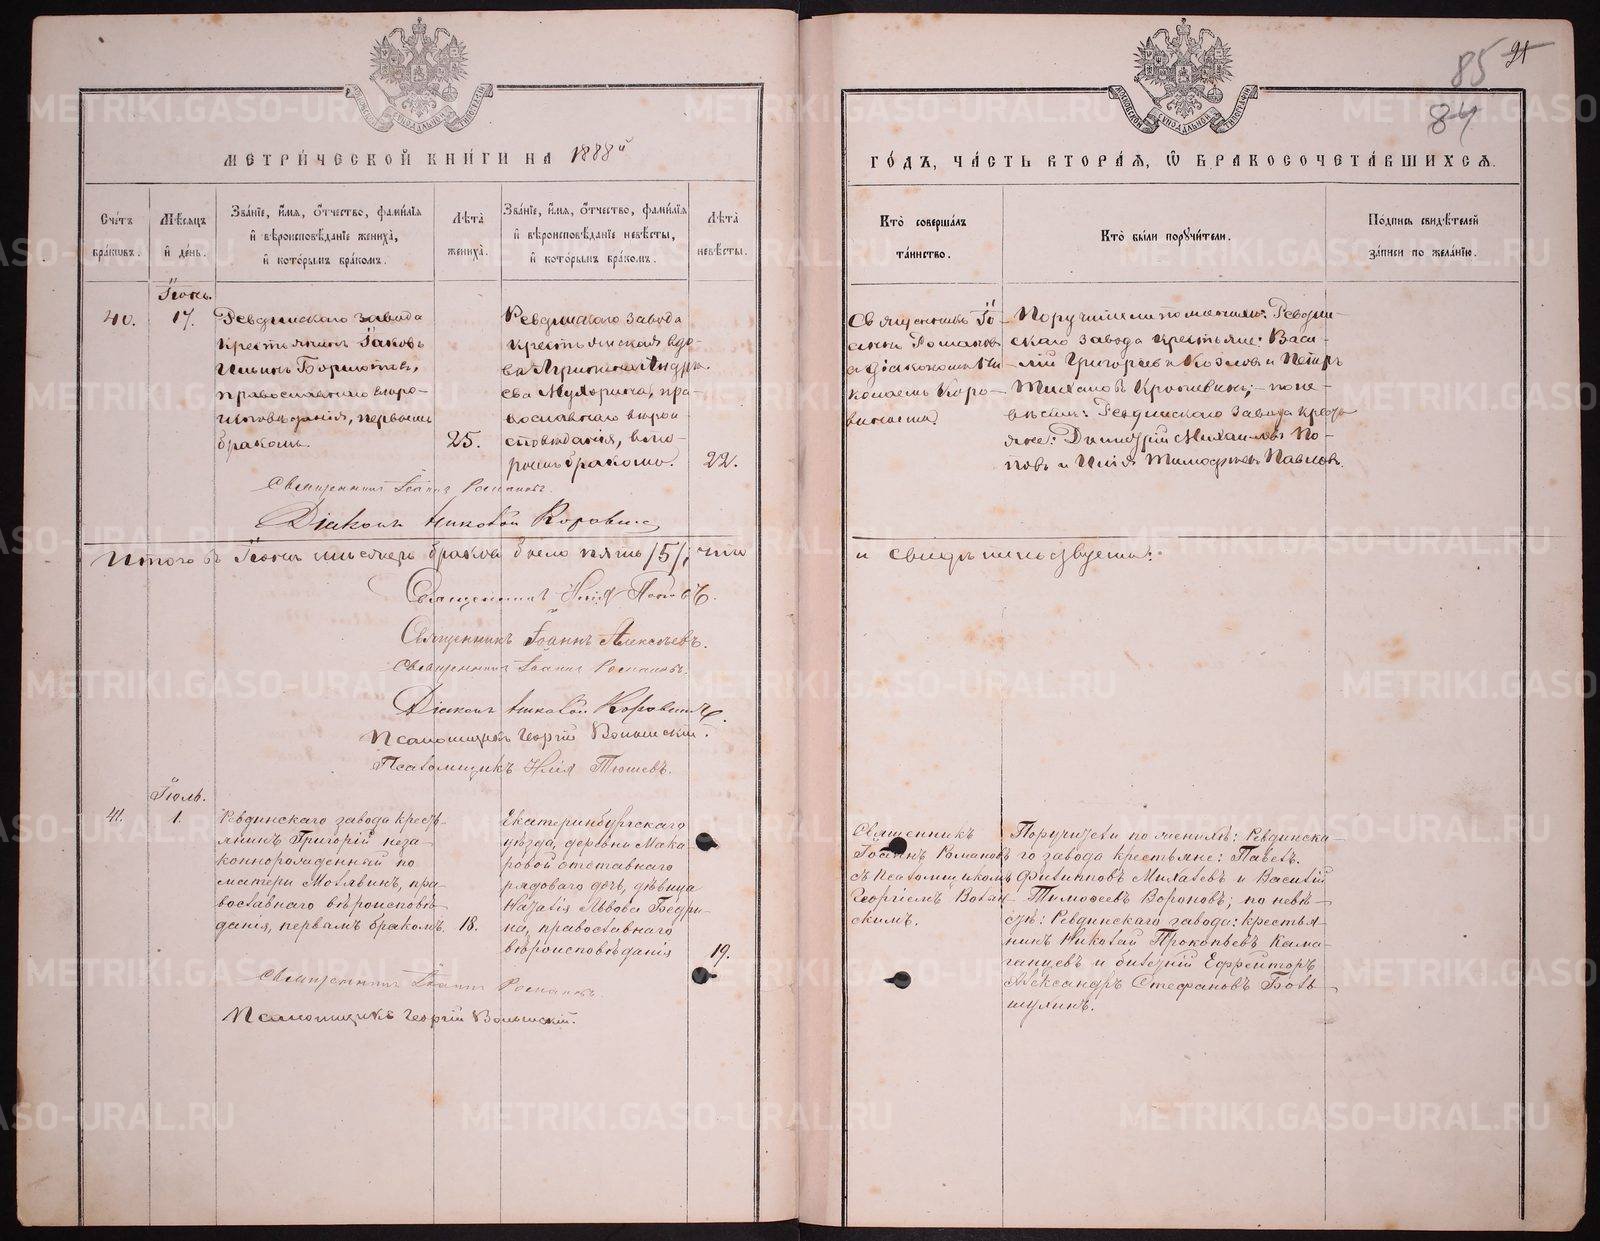 85 21
84
МЕТРИ́ЧЕСКОЙ КНИ́ГИ НА 1888й
ГО́ДЪ, ЧА́СТЬ ВТОРА́Я, Ѡ БРАКОСОЧЕТА́ВШИХСЯ.
Сче́тъ бра́ковъ.
Мѣ́сяцъ и҆ де́нь.
Зва́нїе, и҆́мя, ѻ҆́тчество, фами́лїя
и҆ вѣроисповѣ́данїе жениха̀,
и҆ кото́рымъ бра́комъ.
Лѣ́та жениха̀.
Зва́нїе, и҆́мя, ѻ҆́тчество, фами́лїя
и҆ вѣроисповѣ́данїе невѣ́сты,
и҆ кото́рымъ бра́комъ.
Лѣ́та невѣ́сты.
Кто̀ соверша́лъ
та́инство.
Кто̀ бы́ли порꙋчи́тели.
По́дпись свидѣ́телей
за́писи по жела́нїю.
40.
Іюнь.
17.
Ревдинскаго завода
крестьянинъ Іаковъ
Ильинъ
православнаго вѣро-
исповѣданія, первымъ
бракомъ.
25.
Ревдинскаго завода
крестьянская вдо-
ва Андре-
ева Мухорина, пра-
вославнаго вѣрои-
сповѣданія, вто-
рымъ бракомъ.
22.
Священникъ Іо-
аннъ Романовъ
съ діакономъ Ни-
колаемъ Коро-
винымъ
Поручители по женихѣ: Ревдин-
скаго завода крестьяне: Васи-
лій Григорьевъ Козловъ и Петръ
Тихановъ; по не-
вѣстѣ: Ревдинскаго завода кресть-
яне: Димитрій Михаиловъ По-
повъ и Илія Тимофѣевъ Павловъ.
Священникъ Іоаннъ Романовъ.
Діаконъ Николай Коровинъ
Итого въ Іюнѣ мѣсяцѣ браковъ было пять /5/, что
и свидѣтельствуемъ:
Священникъ Илія Поповъ.
Священникъ Іоаннъ Алексѣевъ.
Священникъ Іоаннъ Романовъ.
Діаконъ Николай Коровинъ.
Псаломщикъ Георгій Волынскій.
Псаломщикъ Илія Тюшевъ.
41.
Іюль.
1.
Ревдинскаго завода кресть-
янинъ Григорій неза-
коннорожденный по
матери Мотявинъ, пра-
вославнаго вѣроисповѣ-
данія, первымъ бракомъ.
18.
Екатеринбургскаго
уѣзда, деревни Мака-
ровой отставнаго
рядоваго дочь, дѣвица
Наталія Львова Бедри-
на, православнаго
вѣроисповѣданія
19.
Священникъ
Іоаннъ Романовъ
съ псаломщикомъ
Георгіемъ Волын-
скимъ.
Поручители по женихѣ: Ревдинска-
го завода крестьяне: Павелъ
Филипповъ Михалевъ и Василій
Тимофеевъ Вороновъ; по невѣ-
стѣ: Ревдинскаго завода: крестья-
нинъ Николай Прокопьевъ Кама-
ганцевъ и билетній Ефрейторъ
Александръ Стефановъ Боль-
шухинъ.
Священникъ Іоаннъ Романовъ.
Псаломщикъ Георгій Волынскій.